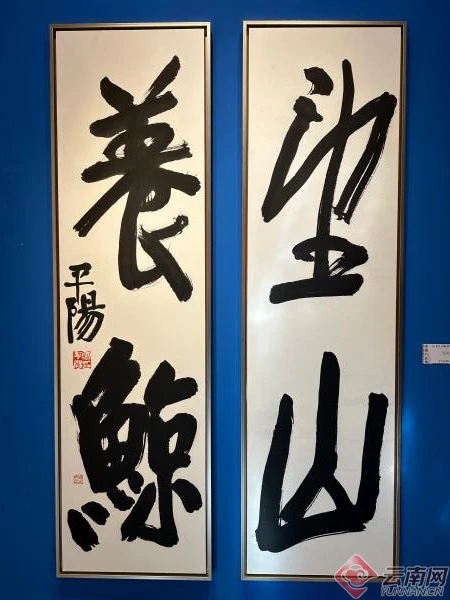 望山
養鯨
平陽
云南网
YUNNAN.CN